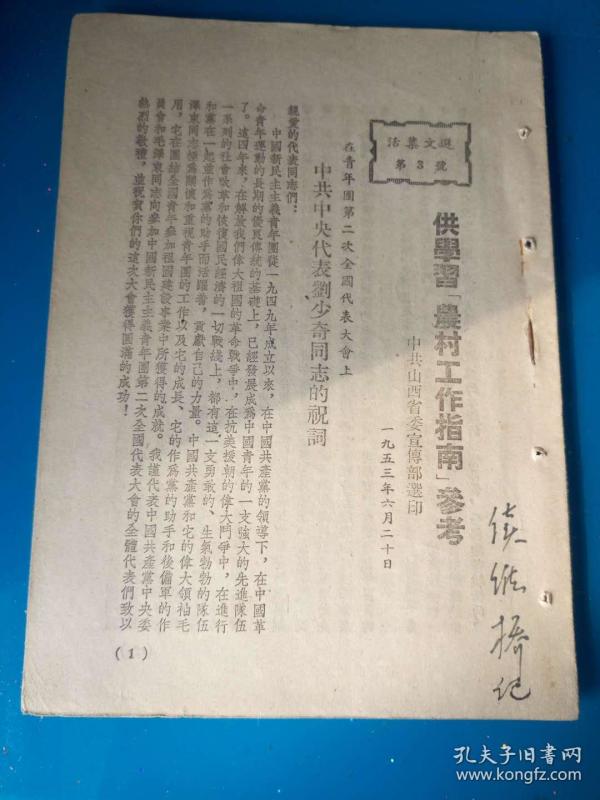 活葉文選
第3號
供學習「農村工作指南」參考
中共山西省委宣傳部選印
一九五三年六月二十日
在青年團第二次全國代表大會上
中共中央代表劉少奇同志的祝詞
親愛的代表同志們：
中國新民主主義青年團從一九四九年成立以來，在中國共產黨的領導下，在中國革
命青年運動的長期的優良傳統的基礎上，已經發展成爲中國青年的一支強大的先進隊伍
了。這四年來，在解放我們偉大祖國的革命戰爭中，在抗美援朝的偉大鬥爭中，在進行
一系列的社會改革和恢復國民經濟的一切戰綫上，都有這一支勇敢的、生氣勃勃的隊伍
和黨在一起並作爲黨的助手而活躍着，貢獻自己的力量。中國共產黨和它的偉大領袖毛
澤東同志極爲關懷和重視青年團的工作以及它的成長、它的作爲黨的助手和後備軍的作
用，它在團結全國青年參加祖國建設事業中所獲得的成就。我謹代表中國共產黨中央委
員會和毛澤東同志向參加中國新民主主義青年團第二次全國代表大會的全體代表們致以
熱烈的敬禮，並祝賀你們的這次大會獲得圓滿的成功！
（1）
孔夫子旧书网
www.kongfz.com